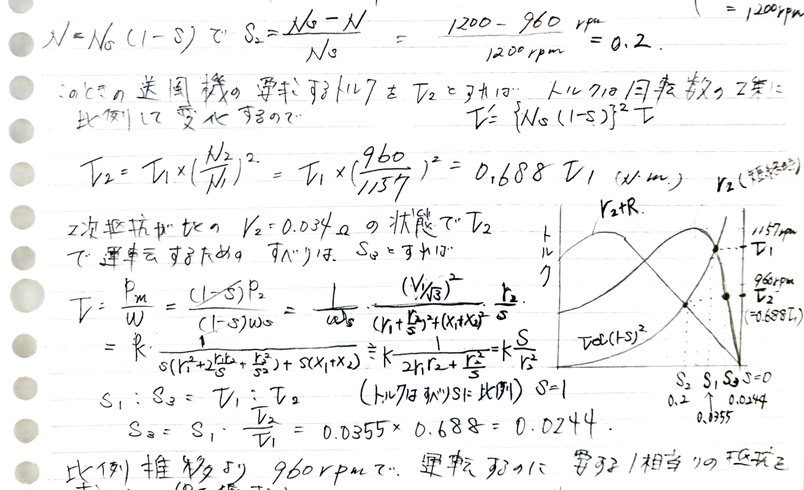 = 1200rpm
N=Ns(1-S) で S2= (Ns-N)/Ns = (1200-960 rpm)/(1200rpm) = 0.2.
このときの送風機の要求するトルクをτ2とすれば トルクは回転数の2乗に
比例して変化するので τ'={Ns(1-S)}²τ
τ2=τ1×(N2/N1)² = τ1×(960/1157)² = 0.688 τ1 (N・m.)
2次抵抗がもとの r2=0.034Ω の状態でτ2
で運転するためのすべりは S3とすれば
τ= Pm/ω = (1-S)P2/(1-S)ωs = 1/ωs · (V1/√3)²/((r1+r2/S)²+(x1+x2)²) · r2/S
= k· 1/(S(r1²+2r1r2/S+r2²/S²)+S(x1+x2)) ≒ k 1/(2r1r2+r2²/S) = k S/r2²
S1:S3=τ1:τ2 (トルクはすべりSに比例)
S3=S1·τ2/τ1 = 0.0355×0.688=0.0244.
比例推移より 960rpmで 運転するのに 要する1相当りの抵抗を
トルク
r2+R
r2
1157rpm
τ1
960rpm
τ2
(=0.688τ1)
τ∝(1-S)²
S=1
S2 S1 S3 S=0
0.2 0.0244
0.0355